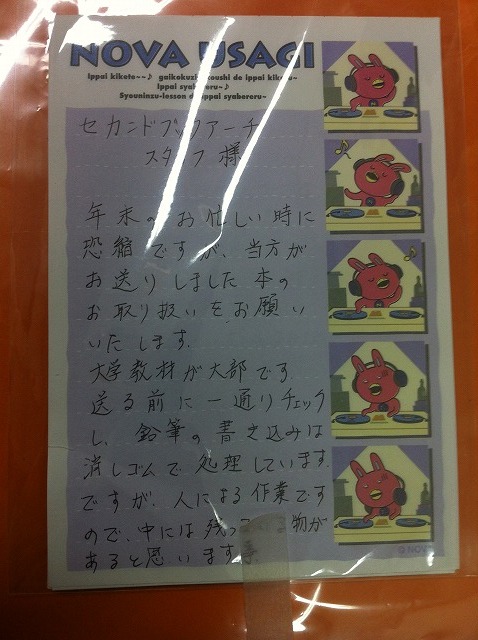 NOVA USAGI
ippai kikote~~♪ gaikokuzin koushi de ippai kikeru~
Ippai syabereru~♪
Syouninzu-lesson de ippai syabereru~
セカンドブックアーチ
スタッフ 様
年末の お忙しい時に
恐縮ですが、当方が
お送りしました 本の
お取り扱いをお願い
いたします.
大学教材が大部です
送る前に一通りチェック
し、鉛筆の書き込みは
消しゴムで処理しています.
ですが、人による作業です
ので、中には残っ 物が
あると思います
© NOVA